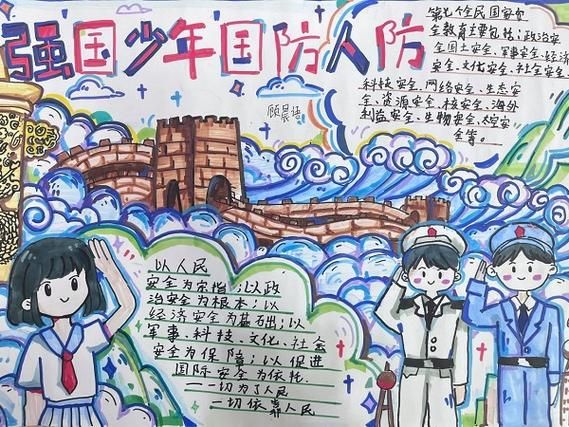 强国少年国防人防
第九个全民国家安
全教育主要包括：政治安
全国土安全、军事安全、经济
安全、文化安全、社会安全、
科技安全、网络安全、生态安
全、资源安全、核安全、海外
利益安全、生物安全、太空安
全等。
顾晨语
以人民
安全为宗指；以政
治安全为根本；以
经济安全为基础；以
军事、科技、文化、社会
安全为保障；以促进
国际安全为依托.
一切为了人民
一切依靠人民